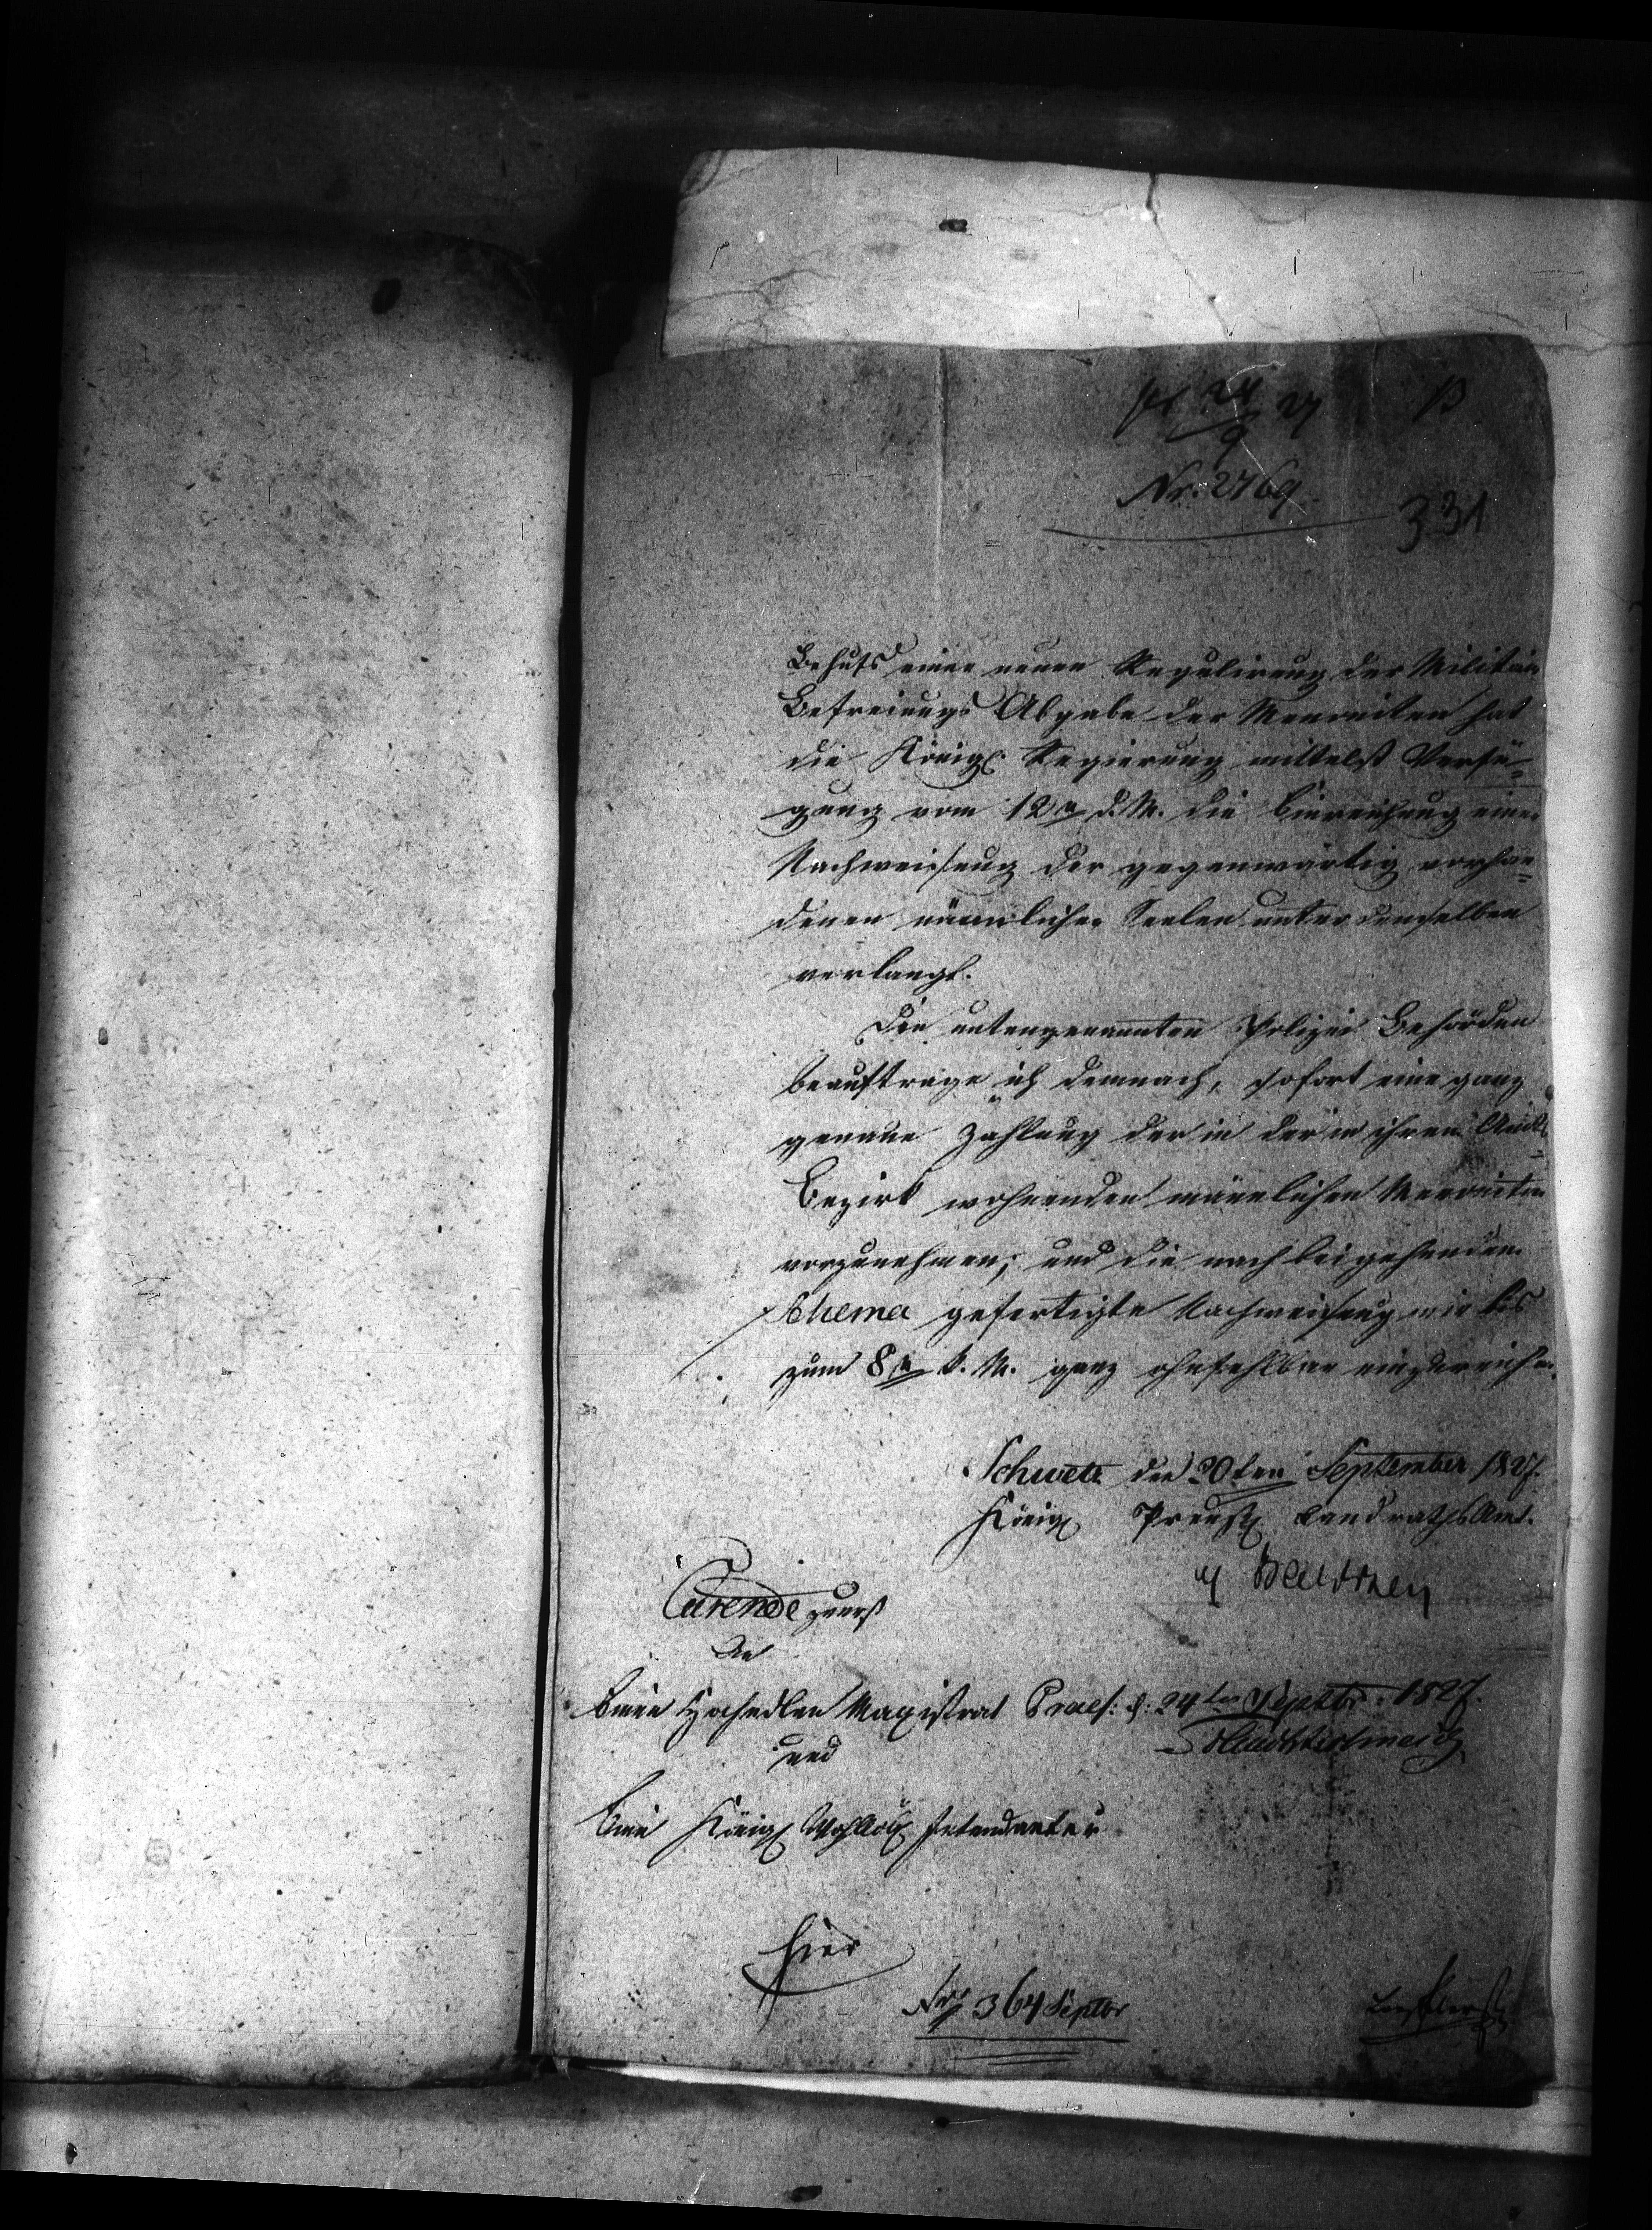 24/9 27
Nr. 2769.
331
Behufs einer neuen Regulirung der Militair
Befreiungs Abgabe der Menoniten hat
die Königl Regierung mittelst Verfü=
gung vom 12n d. M. die Einreichung einer
Nachweisung der gegenwärtig vorhan=
denen männlichen Seelen unter denselben
verlangt.
Die untengenannten Polizei Behörden
beauftrage ich demnach, sofort eine ganz
genaue Zählung der in der in ihrem Amts=
Bezirk wohnenden männlichen Menoniten
vorzunehmen, und die nach beigehenden
Schema gefertigte Nachweisung mir bis
zum 8n k. M. ganz ohnfehlbar einzureichen.
Schwetz den 20ten September 1827.
Königl Preußl Landraths Amt.
Currende zuerst
An
Einen Hochedlen Magistrat
Praes: d: 24ten Septbr: 1827.
und
Eine Königl Wohllöbl Intendantur
hier
Nro 364 Septbr